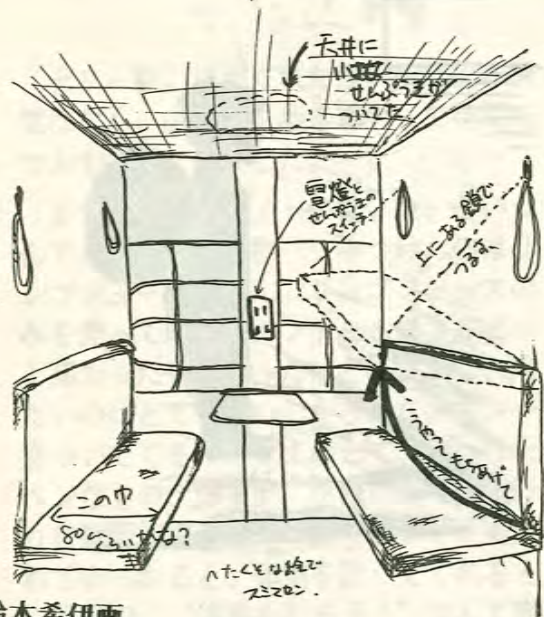 天井に
小型
せんぷうきが
ついてた。
電燈と
せんぷうきの
スイッチ
上にある鎖で
つるす、
こうやってもちあげて
この巾
80ぐらいかな?
ヘたくそな絵で
スミマセン.
鈴木希伊画